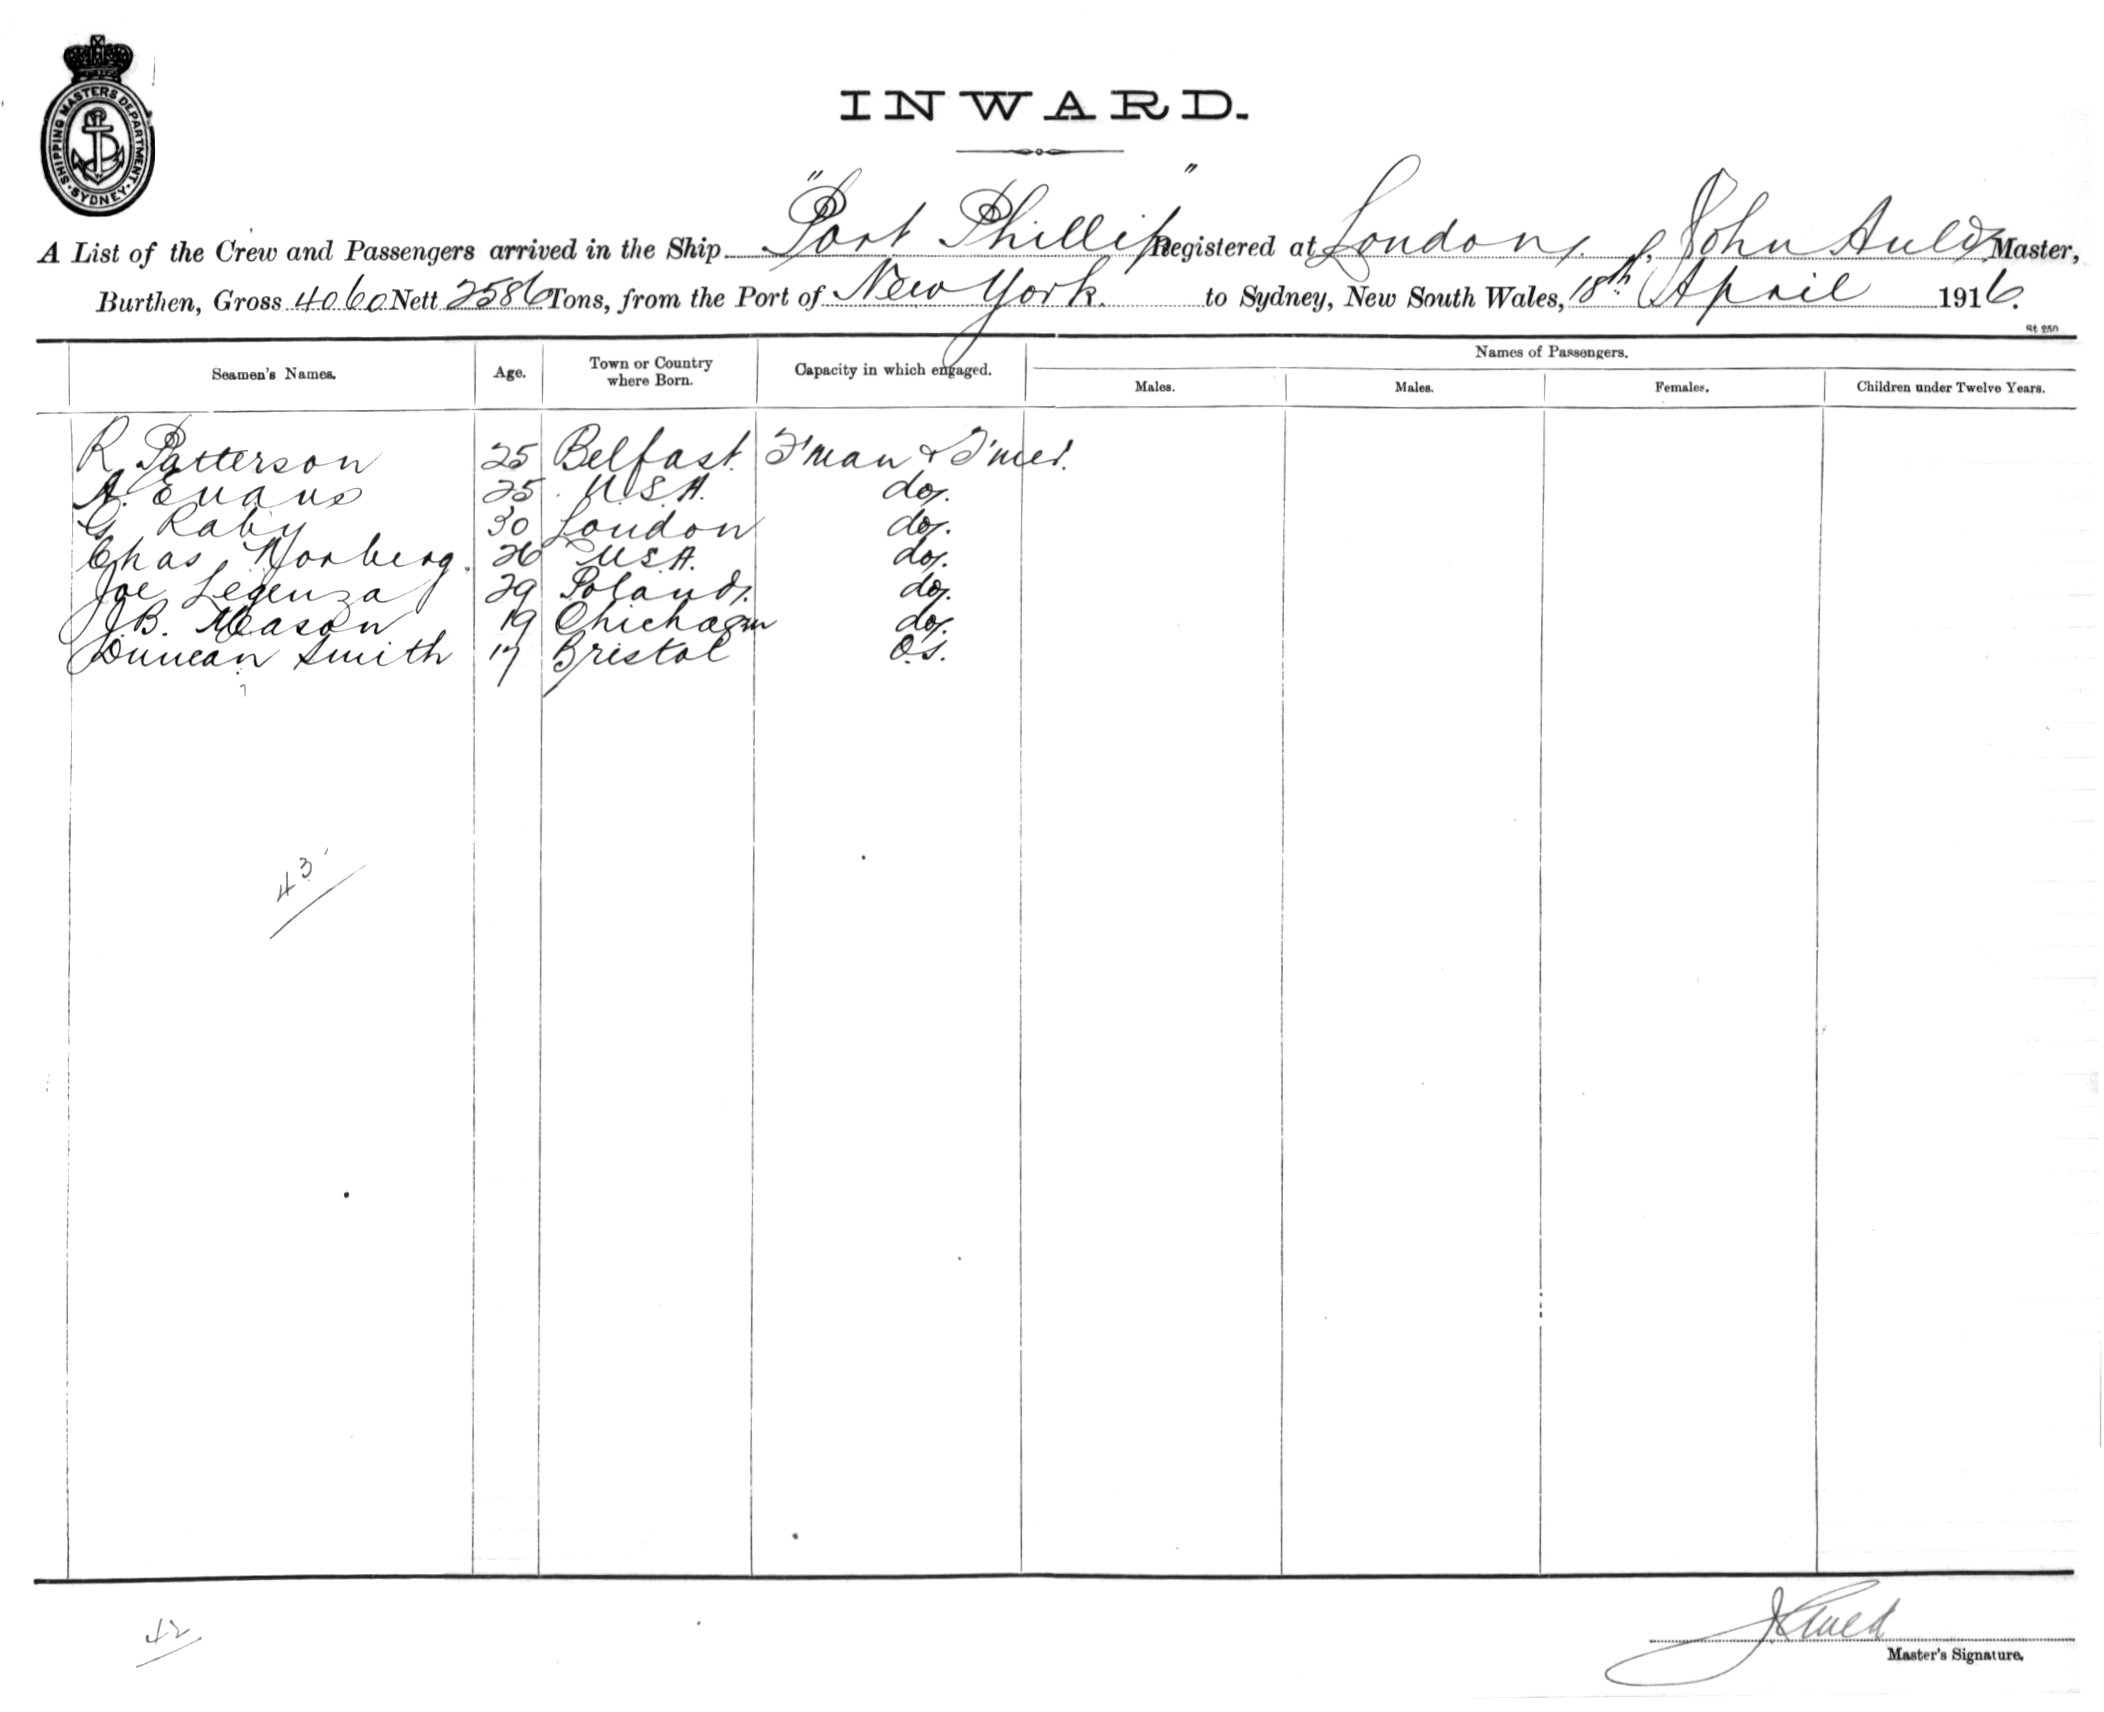 SHIPPING MASTERS DEPARTMENT. SYDNEY.
INWARD.
A List of the Crew and Passengers arrived in the Ship "Port Phillip" Registered at London, John Auld, Master,
Burthen, Gross 4060 Nett 2586 Tons, from the Port of New York. to Sydney, New South Wales, 18th April 1916.
St 250
Seamen's Names. Age. Town or Country where Born. Capacity in which engaged. Names of Passengers.
Males. Males. Females. Children under Twelve Years.
R. Patterson 25 Belfast. F'man & T'mer.
A. Evans 25 U.S.A. do.
G Raby 30 London do.
Chas Norberg. 26 U.S.A. do.
Joe Legenza 29 Poland. do.
J.B. Mason 19 do.
Duncan Smith 17 Bristol O.S.
43
42
J Auld
Master's Signature.